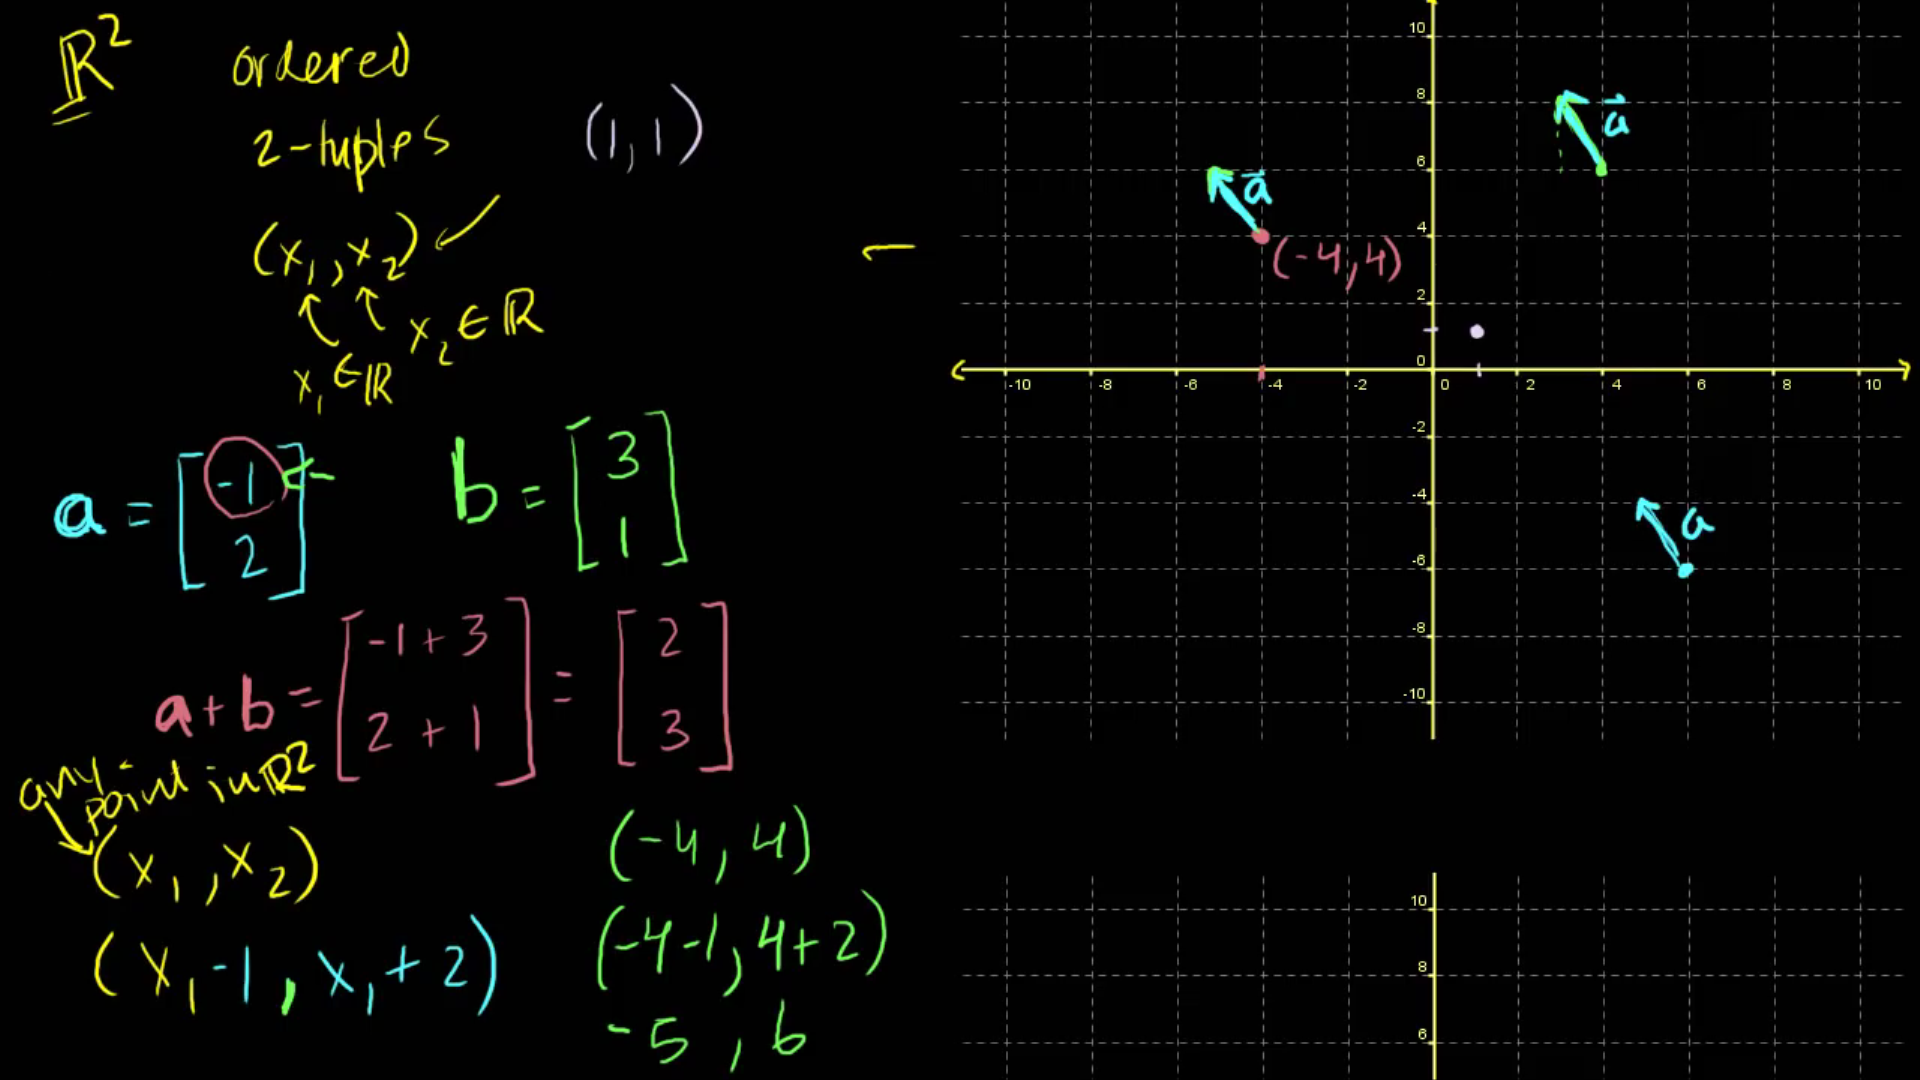 ℝ²
ordered
2-tuples
(1,1)
(x₁,x₂)
x₁∈ℝ
x₂∈ℝ
a = [-1 2]
b = [3 1]
a+b = [-1+3 2+1] = [2 3]
any point in ℝ²
(x₁,x₂)
(x₁-1, x₁+2)
(-4,4)
(-4-1, 4+2)
-5, 6
10
8
6
4
2
0
-2
-4
-6
-8
-10
-10 -8 -6 -4 -2 0 2 4 6 8 10
a⃗
a⃗
(-4,4)
a
10
8
6